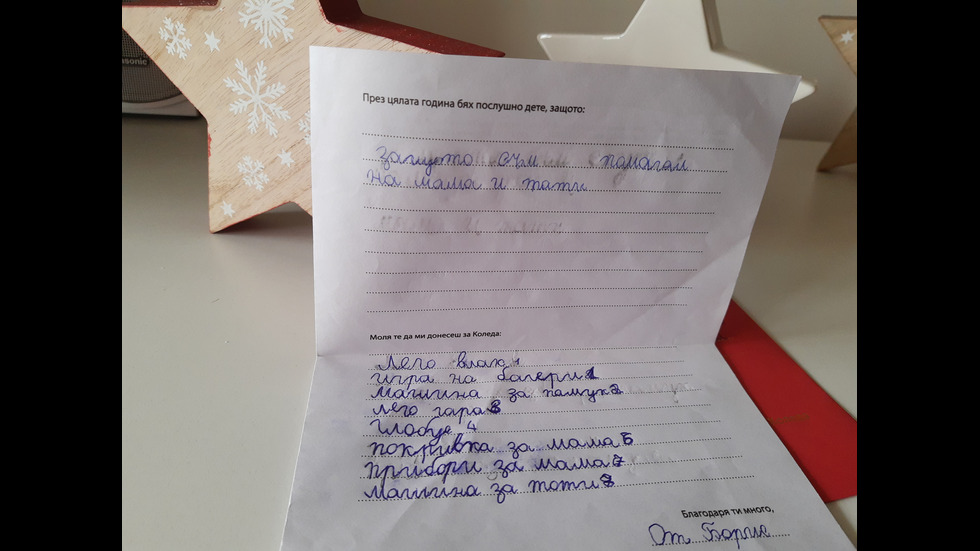 През цялата година бях послушно дете, защото:
защото съм помагал
на мама и тати
Моля те да ми донесеш за Коледа:
Лего влак
игра на балери 1
машина за памук 2
лего гара 3
4
покривка за мама 6
прибори за мама 7
Машина за тоти 8
Благодаря ти много,
От Борис